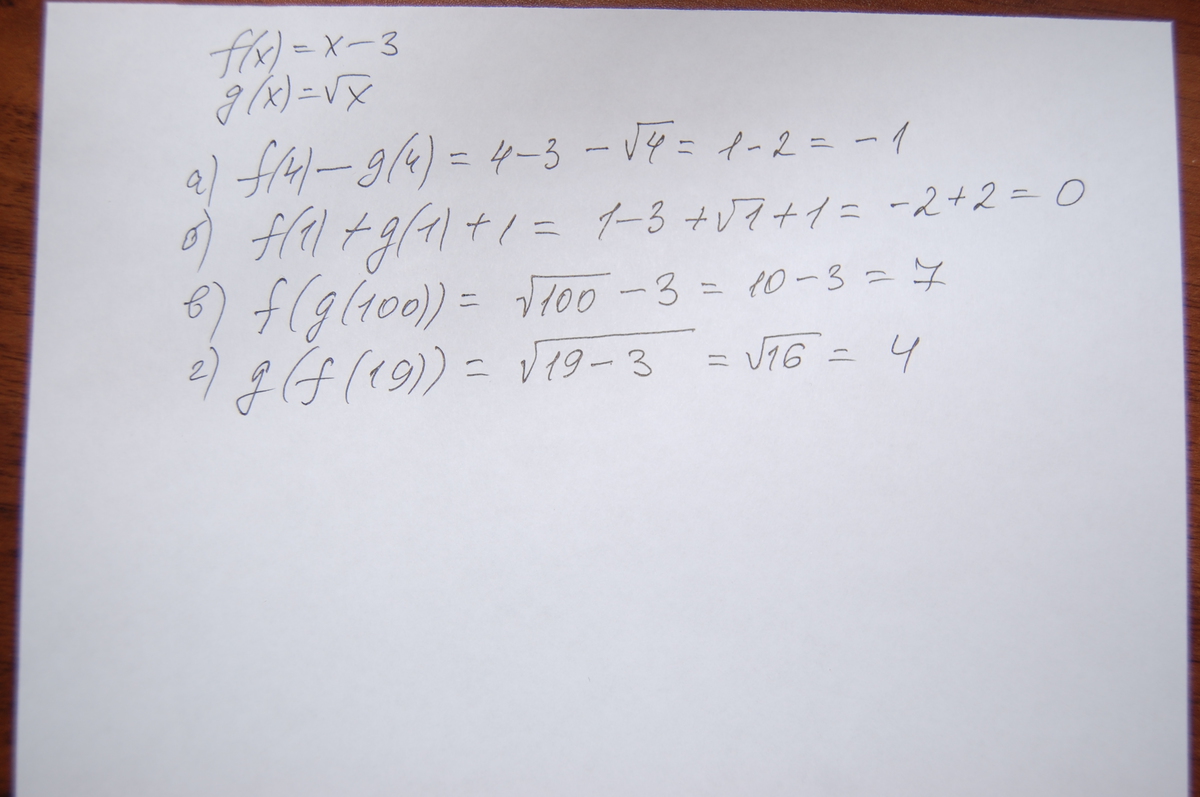 f(x) = x - 3
g(x) = √x
а) f(4) - g(4) = 4 - 3 - √4 = 1 - 2 = - 1
б) f(1) + g(1) + 1 = 1 - 3 + √1 + 1 = - 2 + 2 = 0
в) f(g(100)) = √100 - 3 = 10 - 3 = 7
г) g(f(19)) = √(19 - 3) = √16 = 4